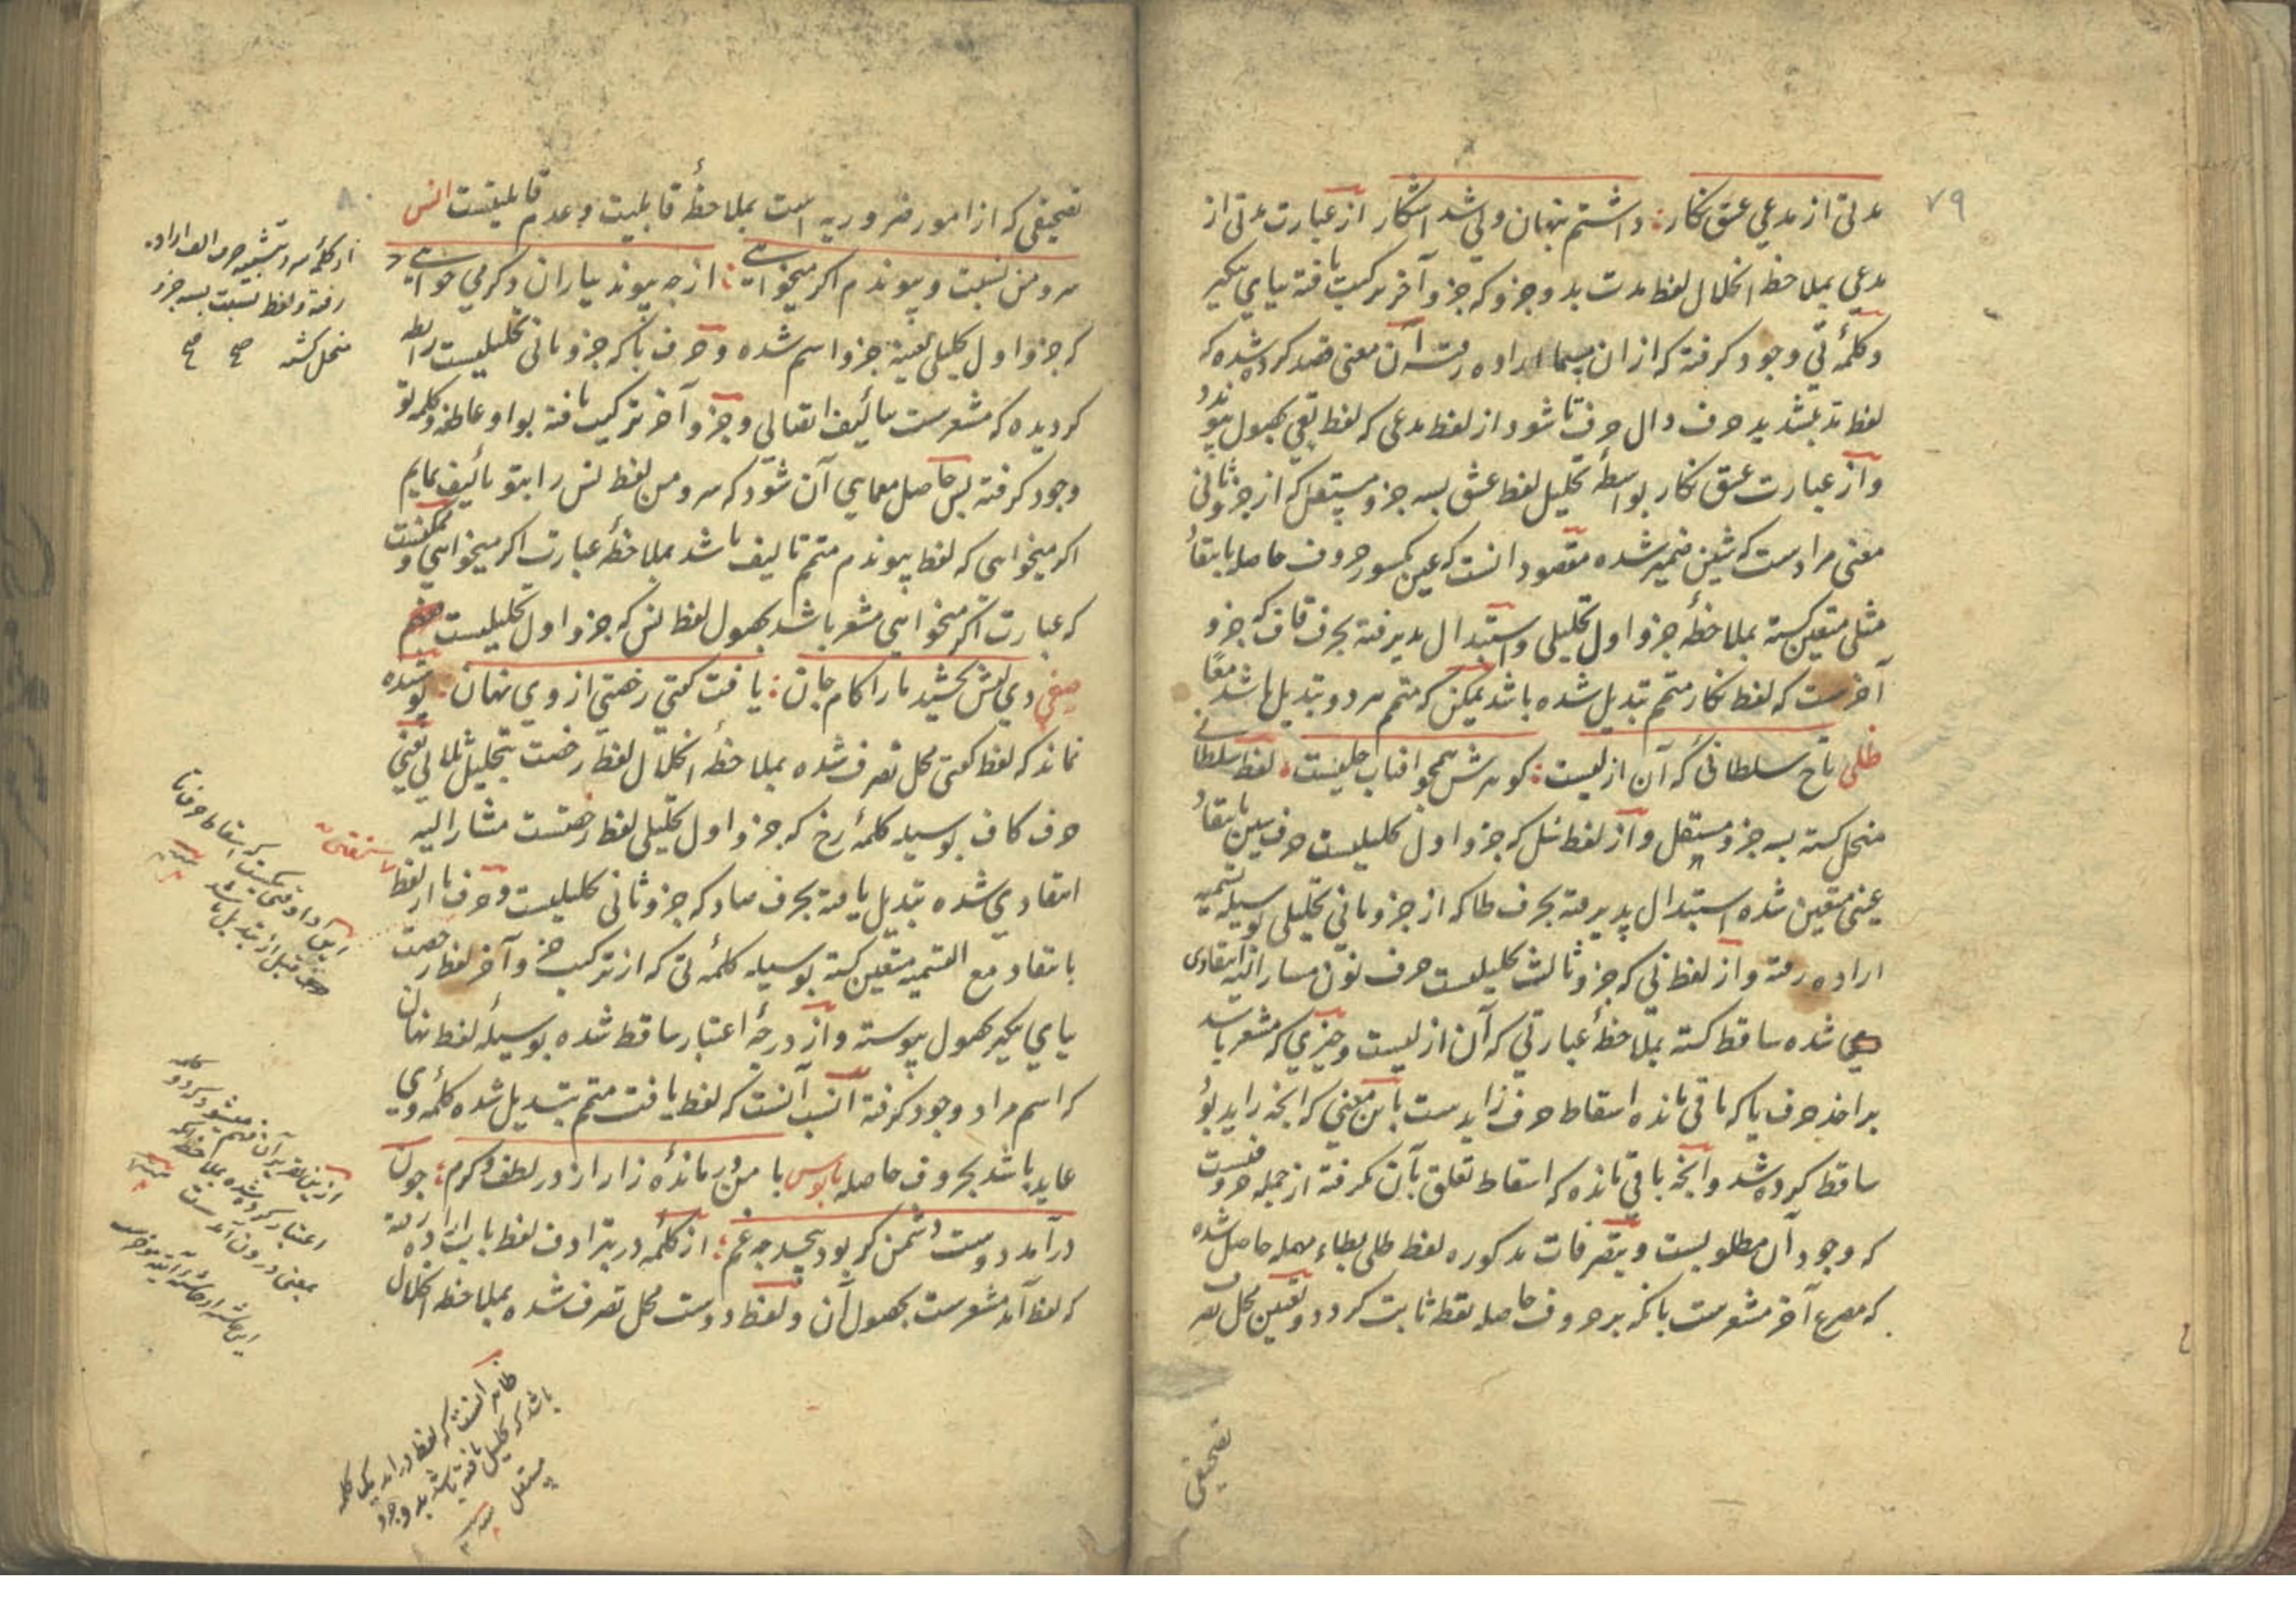 ۷۹
مدتی از مدعی عشق نکار : داشتم پنهان ولی شد اشکار از عبارت مدتی از
مدعی بملاحظهٔ انحلال لفظ مدت بدو جزو که جزو آخر ترکیب یافته بیای نکیر
وکلمهٔ تی وجود کرفته که از ان اراده رفته آن معنی قصد کرده شده که
لفظ مد بتشدید حرف دال حرف تا شود از لفظ مدعی که لفظ بحصول پیوندد
واز عبارت عشق نکار بواسطهٔ تحلیل لفظ عشق بسه جزو مستقل که از جزو ثانی
معنی مرادست که شین ضمیر شده مقصود انست که عین مکسور حروف حاصله بانتقاد
مثلی متعین کشته بملاحظهٔ جزو اول تحلیلی و استبدال پذیرفته بحرف قاف که جزو
آخرست که لفظ نکار متمم تبدیل شده باشد یمکن که متمم هر دو تبدیل باشد معًا
ظلی تاج سلطانی که آن ازلیست : کوهرش همچو افتاب جلیست : لفظ سلطانی
منحل کشته بسه جزو مستقل و از لفظ سل که جزو اول تحلیلیست حرف سین بانتقاد
عینی متعین شده استبدال پذیرفته بحرف طا که از جزو ثانی تحلیلی بوسیله تسمیه
اراده رفته و از لفظ نی که جزو ثالث تحلیلیست حرف نون مشار الیه انتقادی
شده ساقط کشته بملاحظهٔ عبارتی که آن ازلیست و چیزی که مشعر باشد
بر اخذ حرف یا که باقی مانده اسقاط حرف زایدست باین معنی که انچه زاید بود
ساقط کرده شد و انچه باقی مانده که اسقاط تعلق بآن نکرفته از جمله حروفیست
که وجود آن مطلوبست و بتصرفات مذکوره لفظ طلی بطاء مهمله حاصل شده
که مصرع آخر مشعرست بانکه بر حروف حاصله نقطه ثابت کردد و تعیین محل تصرف
تصحیفی
۸۰
تصحیفی که از امور ضروریه است بملاحظهٔ قابلیت و عدم قابلیتست انس
سرو من نسبت و پیوندم اکر میخواهی : از چه پیوند بیاران دکر می خواهی
که جزو اول تحلیلی بعینه جزو اسم شده و حرف با که جزو ثانی تحلیلیست رابطه
کردیده که مشعرست بتألیف اتصالی و جزو آخر ترکیب یافته بواو عاطفه و کلمه تو
وجود کرفته پس حاصل معمایی آن شود که سرو من لفظ نس را بتو تألیف نمایم
اکر میخواهی که لفظ پیوندم متمم تالیف باشد بملاحظهٔ عبارت اکر میخواهی و ممکنست
که عبارت اکر میخواهی مشعر باشد بحصول لفظ نس که جزو اول تحلیلیست
صفی دی لبش بخشید ما را کام جان : یافت کفتی رخصتی از وی نهان : پوشیده
نماند که لفظ کفتی محل تصرف شده بملاحظهٔ انحلال لفظ رخصت بتحلیل ثلاثی یعنی
حرف کاف بوسیله کلمهٔ رخ که جزو اول تحلیلی لفظ رخصتست مشار الیه
انتقادی شده تبدیل یافته بحرف صاد که جزو ثانی تحلیلیست و حرف تا از لفظ
بانتقاد مع التسمیه متعین کشته بوسیله کلمهٔ تی که از ترکیب جزو آخر لفظ رخصت
بیای نکیر بحصول پیوسته و از درجهٔ اعتبار ساقط شده بوسیلهٔ لفظ نهان
که اسم مراد وجود کرفته انسب آنست که لفظ یافت متمم تبدیل شده کلمهٔ وی
عاید باشد بحروف حاصله بابوس با من درماندهٔ زار از در لطف و کرم : چون
درآمد دوست دشمن کر بود بیحد چه غم : از کلمهٔ در بترادف لفظ باب اراده رفته
که لفظ آمد مشعرست بحصول آن و لفظ دوست محل تصرف شده بملاحظه انحلال
از کلمهٔ سرو تشبیه حرف الف اراده
رفته و لفظ نسبت بسه جزو
منحل کشته صح صح
کفتی
این ممکنست که اسقاط حرف تا
قبل از تبدیل باشد
اعتبار کرده شده بملاحظه آنکه
بمعنی درون آمدست
ظاهر انست که لفظ درامد یک کلمه
باشد که تحلیل یافته باشد بدو جزو
مستقل